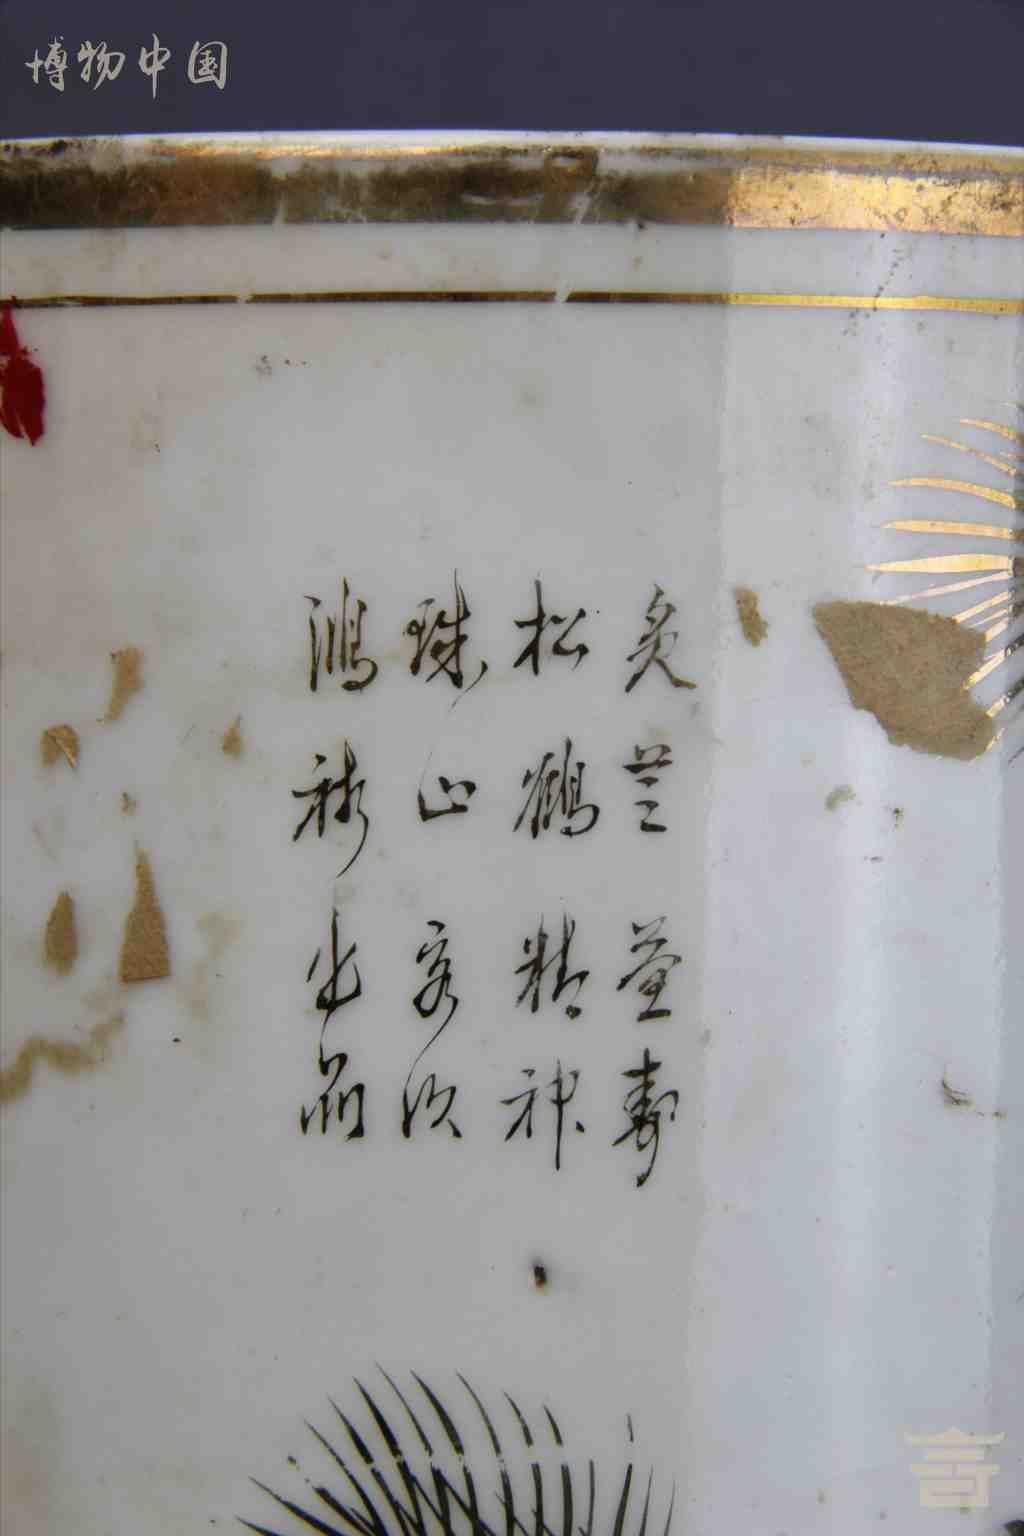 博物中国
灵芝益寿
松鹤精神
珠山客次
鸿出品